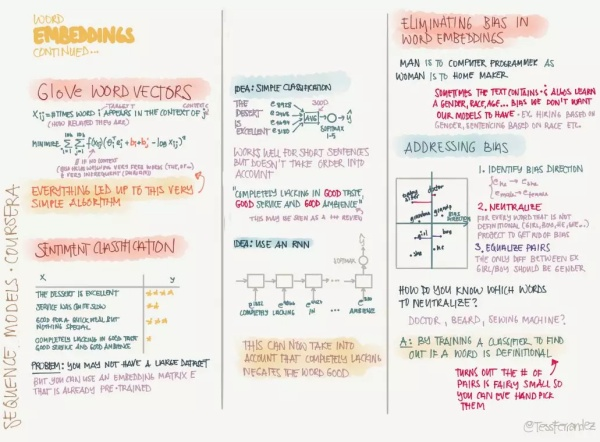 WORD
EMBEDDINGS
CONTINUED...
GLOVE WORD VECTORS
TARGET
CONTEXT
Xij = # TIMES WORD i APPEARS IN THE CONTEXT OF j
(HOW RELATED THEY ARE)
MINIMIZE
EVERYTHING LED UP TO THIS VERY
SIMPLE ALGORITHM
SENTIMENT CLASSIFICATION
X Y
THE DESSERT IS EXCELLENT
SERVICE WAS QUITE SLOW
GOOD FOR A QUICK MEAL BUT
NOTHING SPECIAL
COMPLETELY LACKING IN GOOD TASTE
GOOD SERVICE AND GOOD AMBIENCE
PROBLEM: YOU MAY NOT HAVE A LARGE DATASET
BUT YOU CAN USE AN EMBEDDING MATRIX E
THAT IS ALREADY PRE-TRAINED
SEQUENCE MODELS · COURSERA
IDEA: SIMPLE CLASSIFICATION
THE
DESSERT
IS
EXCELLENT
AVG
SOFTMAX
1-5
WORKS WELL FOR SHORT SENTENCES
BUT DOESN'T TAKE ORDER INTO
ACCOUNT
"COMPLETELY LACKING IN GOOD TASTE,
GOOD SERVICE AND GOOD AMBIENCE"
THIS MAY BE SEEN AS A REVIEW
IDEA: USE AN RNN
SOFTMAX
COMPLETELY LACKING IN ... AMBIENCE
THIS CAN NOW TAKE INTO
ACCOUNT THAT COMPLETELY LACKING
NEGATES THE WORD GOOD
ELIMINATING BIAS IN
WORD EMBEDDINGS
MAN IS TO COMPUTER PROGRAMMER AS
WOMAN IS TO HOME MAKER
SOMETIMES THE TEXT CONTAINS & ALGOS LEARN
A GENDER, RACE, AGE... BIAS WE DON'T WANT
OUR MODELS TO HAVE · EX. HIRING BASED ON
GENDER, SENTENCING BASED ON RACE ETC.
ADDRESSING BIAS
doctor
girl
boy
she
he
BIAS
DIRECTION
1. IDENTIFY BIAS DIRECTION
e he - e she
e male - e female
2. NEUTRALIZE
FOR EVERY WORD THAT IS NOT
DEFINITIONAL (GIRL, BOY, HE, SHE...)
PROJECT TO GET RID OF BIAS
3. EQUALIZE PAIRS
THE ONLY DIFF BETWEEN EX
GIRL/BOY SHOULD BE GENDER
HOW DO YOU KNOW WHICH WORDS
TO NEUTRALIZE?
DOCTOR, BEARD, SEWING MACHINE?
A: BY TRAINING A CLASSIFIER TO FIND
OUT IF A WORD IS DEFINITIONAL
TURNS OUT THE # OF
PAIRS IS FAIRLY SMALL SO
YOU CAN EVE HAND PICK
THEM
@TessFerrandez